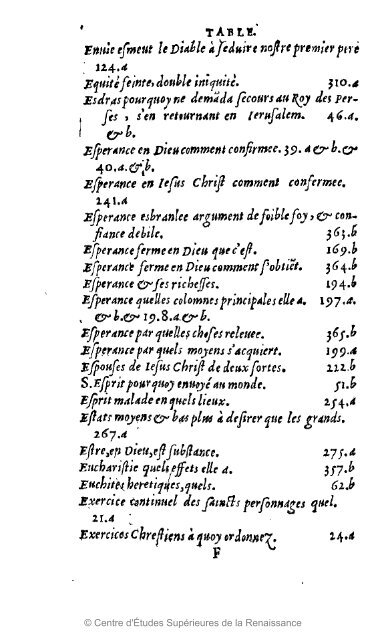 TABLE.
Enuie esmeut le Diable à seduire nostre premier pere
124.a
Equité feinte, double iniquité. 310.a
Esdras pourquoy ne demãda secours au Roy des Per-
ses, s'en retournant en Ierusalem. 46.a.
& b.
Esperance en Dieu comment confirmee. 39. a & b. &
40. a. & b.
Esperance en Iesus Christ comment confermee.
241.a
Esperance esbranlee argument de foible foy, & con-
fiance debile. 363.b
Esperance ferme en Dieu que c'est. 169.b
Esperance ferme en Dieu comment s'obtiẽt. 364.b
Esperance & ses richesses. 194.b
Esperance quelles colomnes principales elle a. 197.a.
& b. & 19.8.a & b.
Esperance par quelles choses releuee. 365.b
Esperance par quels moyens s'acquiert. 199.a
Espouses de Iesus Christ de deux sortes. 222.b
S. Esprit pourquoy enuoyé au monde. 51.b
Esprit malade en quels lieux. 254.a
Estats moyens & bas plus à desirer que les grands.
267.a
Estre, en Dieu, est substance. 275.a
Eucharistie quels effets elle a. 357.b
Euchites heretiques, quels. 62.b
Exercice continuel des saincts personnages quel.
21.a
Exercices Chrestiens à quoy ordonnez. 24.a
F
© Centre d'Études Supérieures de la Renaissance